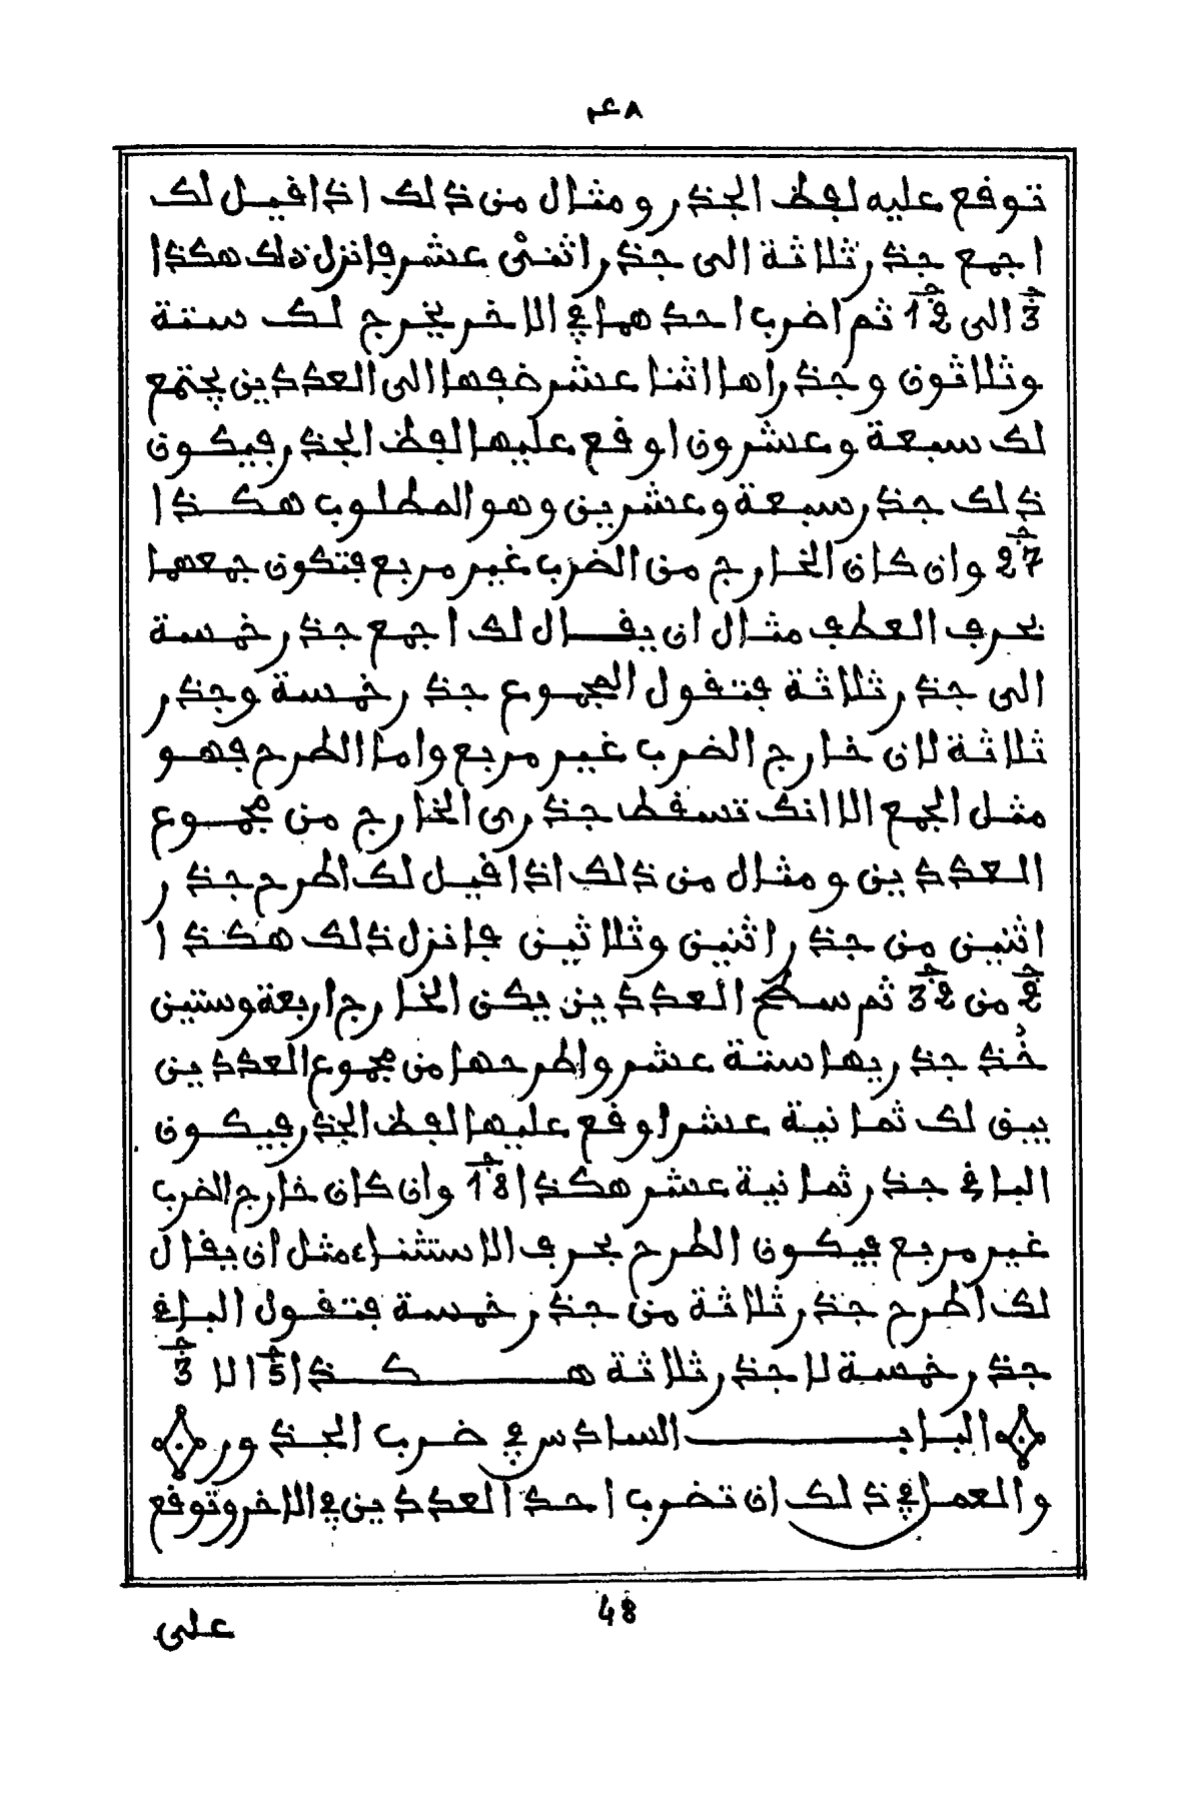 ٤٨
توقع عليه لفظ الجذر ومثال من ذلك اذا قيل لك
اجمع جذر ثلاثة الى جذر اثنىْ عشر فانزل ذلك هكذا
3 الى 12 ثم اضرب احدهما في الاخر يخرج لك ستة
وثلاثون وجذراها اثنا عشر ضفها الى العددين يجتمع
لك سبعة وعشرون اوقع عليها لفظ الجذر فيكون
ذلك جذر سبعة وعشرين وهو المطلوب هكذا
27 وان كان الخارج من الضرب غير مربع فتكون جمعهما
بحرف العطف مثال ان يقال لك اجمع جذر خمسة
الى جذر ثلاثة فتقول المجموع جذر خمسة وجذر
ثلاثة لان خارج الضرب غير مربع واما الطرح فهو
مثل الجمع الا انك تسقط جذرى الخارج من مجموع
العددين ومثال من ذلك اذا قيل لك اطرح جذر
اثنين من جذر اثنين وثلاثين فانزل ذلك هكذا
2 من 32 ثم سطح العددين يكن الخارج اربعة وستين
خُذ جذريها ستة عشر واطرحها من مجموع العددين
يبق لك ثمانية عشر اوقع عليها لفظ الجذر فيكون
الباقي جذر ثمانية عشر هكذا 18 وان كان خارج الضرب
غير مربع فيكون الطرح بحرف الاستثناء مثل ان يقال
لك اطرح جذر ثلاثة من جذر خمسة فتقول الباقي
جذر خمسة لا جذر ثلاثة هكذا 5 الا 3
الباب السادس في ضرب الجذور
والعمل في ذلك ان تضرب احد العددين في الاخر وتوقع
48
على